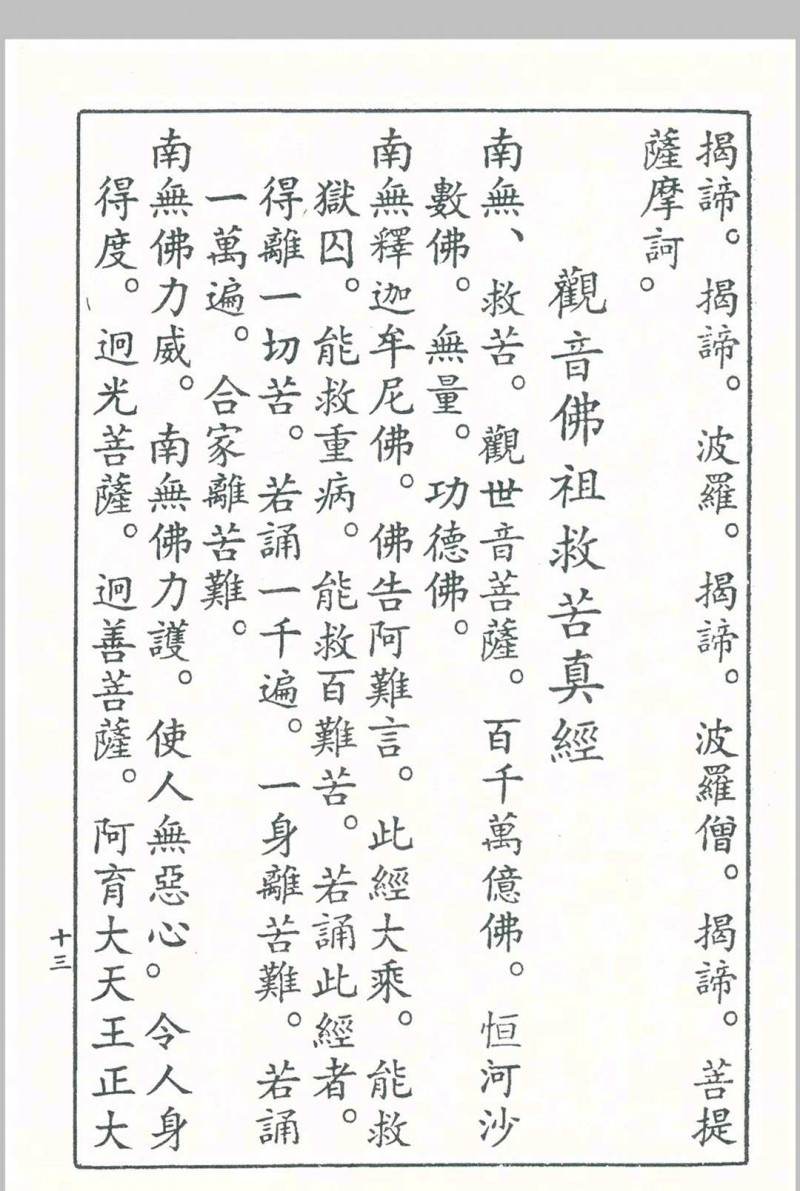 揭諦。揭諦。波羅。揭諦。波羅僧。揭諦。菩提
薩摩訶。
觀音佛祖救苦真經
南無、救苦。觀世音菩薩。百千萬億佛。恒河沙
數佛。無量。功德佛。
南無釋迦牟尼佛。佛告阿難言。此經大乘。能救
獄囚。能救重病。能救百難苦。若誦此經者。
得離一切苦。若誦一千遍。一身離苦難。若誦
一萬遍。合家離苦難。
南無佛力威。南無佛力護。使人無惡心。令人身
得度。迥光菩薩。迥善菩薩。阿育大天王正大
十三